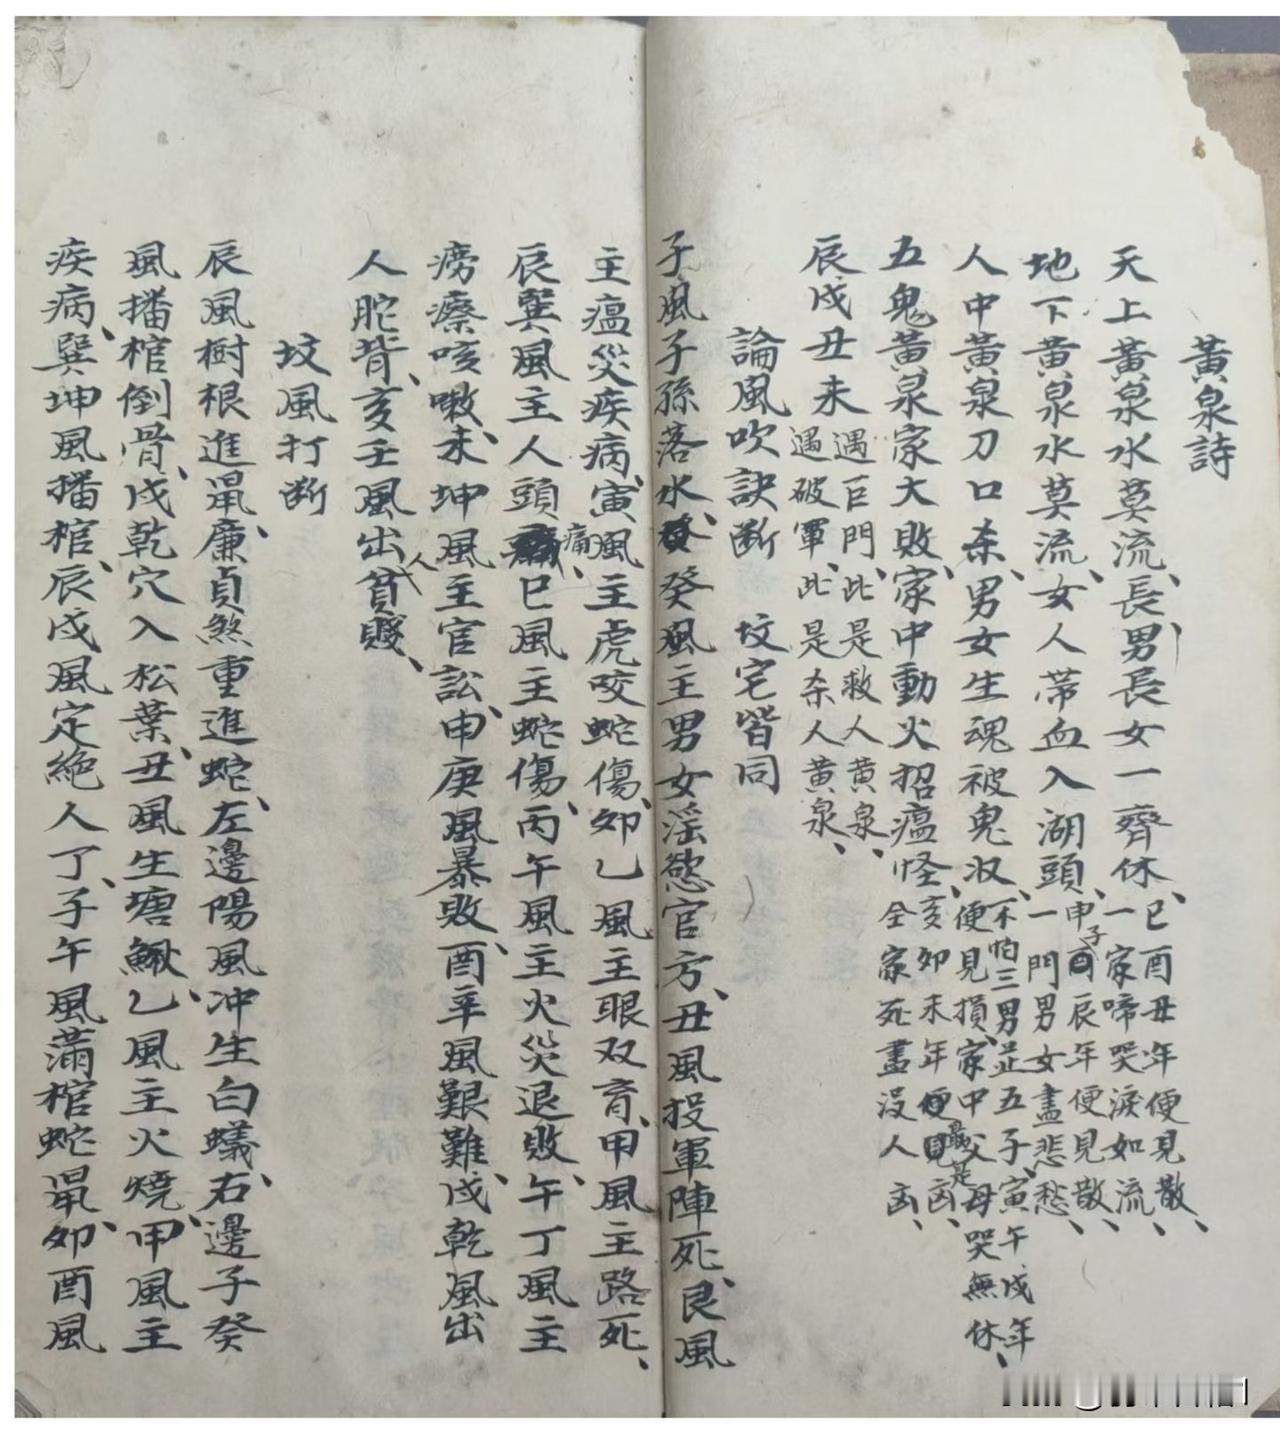 黃泉詩
天上黃泉水莫流、長男長女一齊休、巳酉丑年便見散、一家啼哭淚如流、
地下黃泉水莫流、女人帶血入湖頭、申子辰年便見散、一門男女盡悲愁、
人中黃泉刀口杀、男女生魂被鬼收、不怕三男並五子、寅午戌年便見損、家中父母哭無休、
五鬼黃泉家大敗、家中動火招瘟怪、亥卯未年便見凶、全家死盡沒人
辰戌丑未遇巨門、此是救人黃泉、遇破軍、此是杀人黃泉、
論風吹訣斷 坟宅皆同
子風子孫落水、癸風主男女淫慾官方、丑風投軍陣死、艮風
主瘟災疾病、寅風主虎咬蛇傷、卯乙風主眼双盲、甲風主路死、
辰巽風主人頭痛、巳風主蛇傷、丙午風主火災退敗、午丁風主
癆瘵咳嗽、未坤風主官訟、申庚風暴敗、酉辛風艱難、戌乾風出
人駝背、亥壬風出人貧賤、
坟風打斷
辰風樹根進鼠、廉貞煞重進蛇、左邊陽風冲生白蟻、右邊子癸
風播棺倒骨、戌乾穴入松葉、丑風生塘鰍、乙風主火燒、甲風主
疾病、巽坤風播棺、辰戌風定絕人丁、子午風滿棺蛇鼠、卯酉風